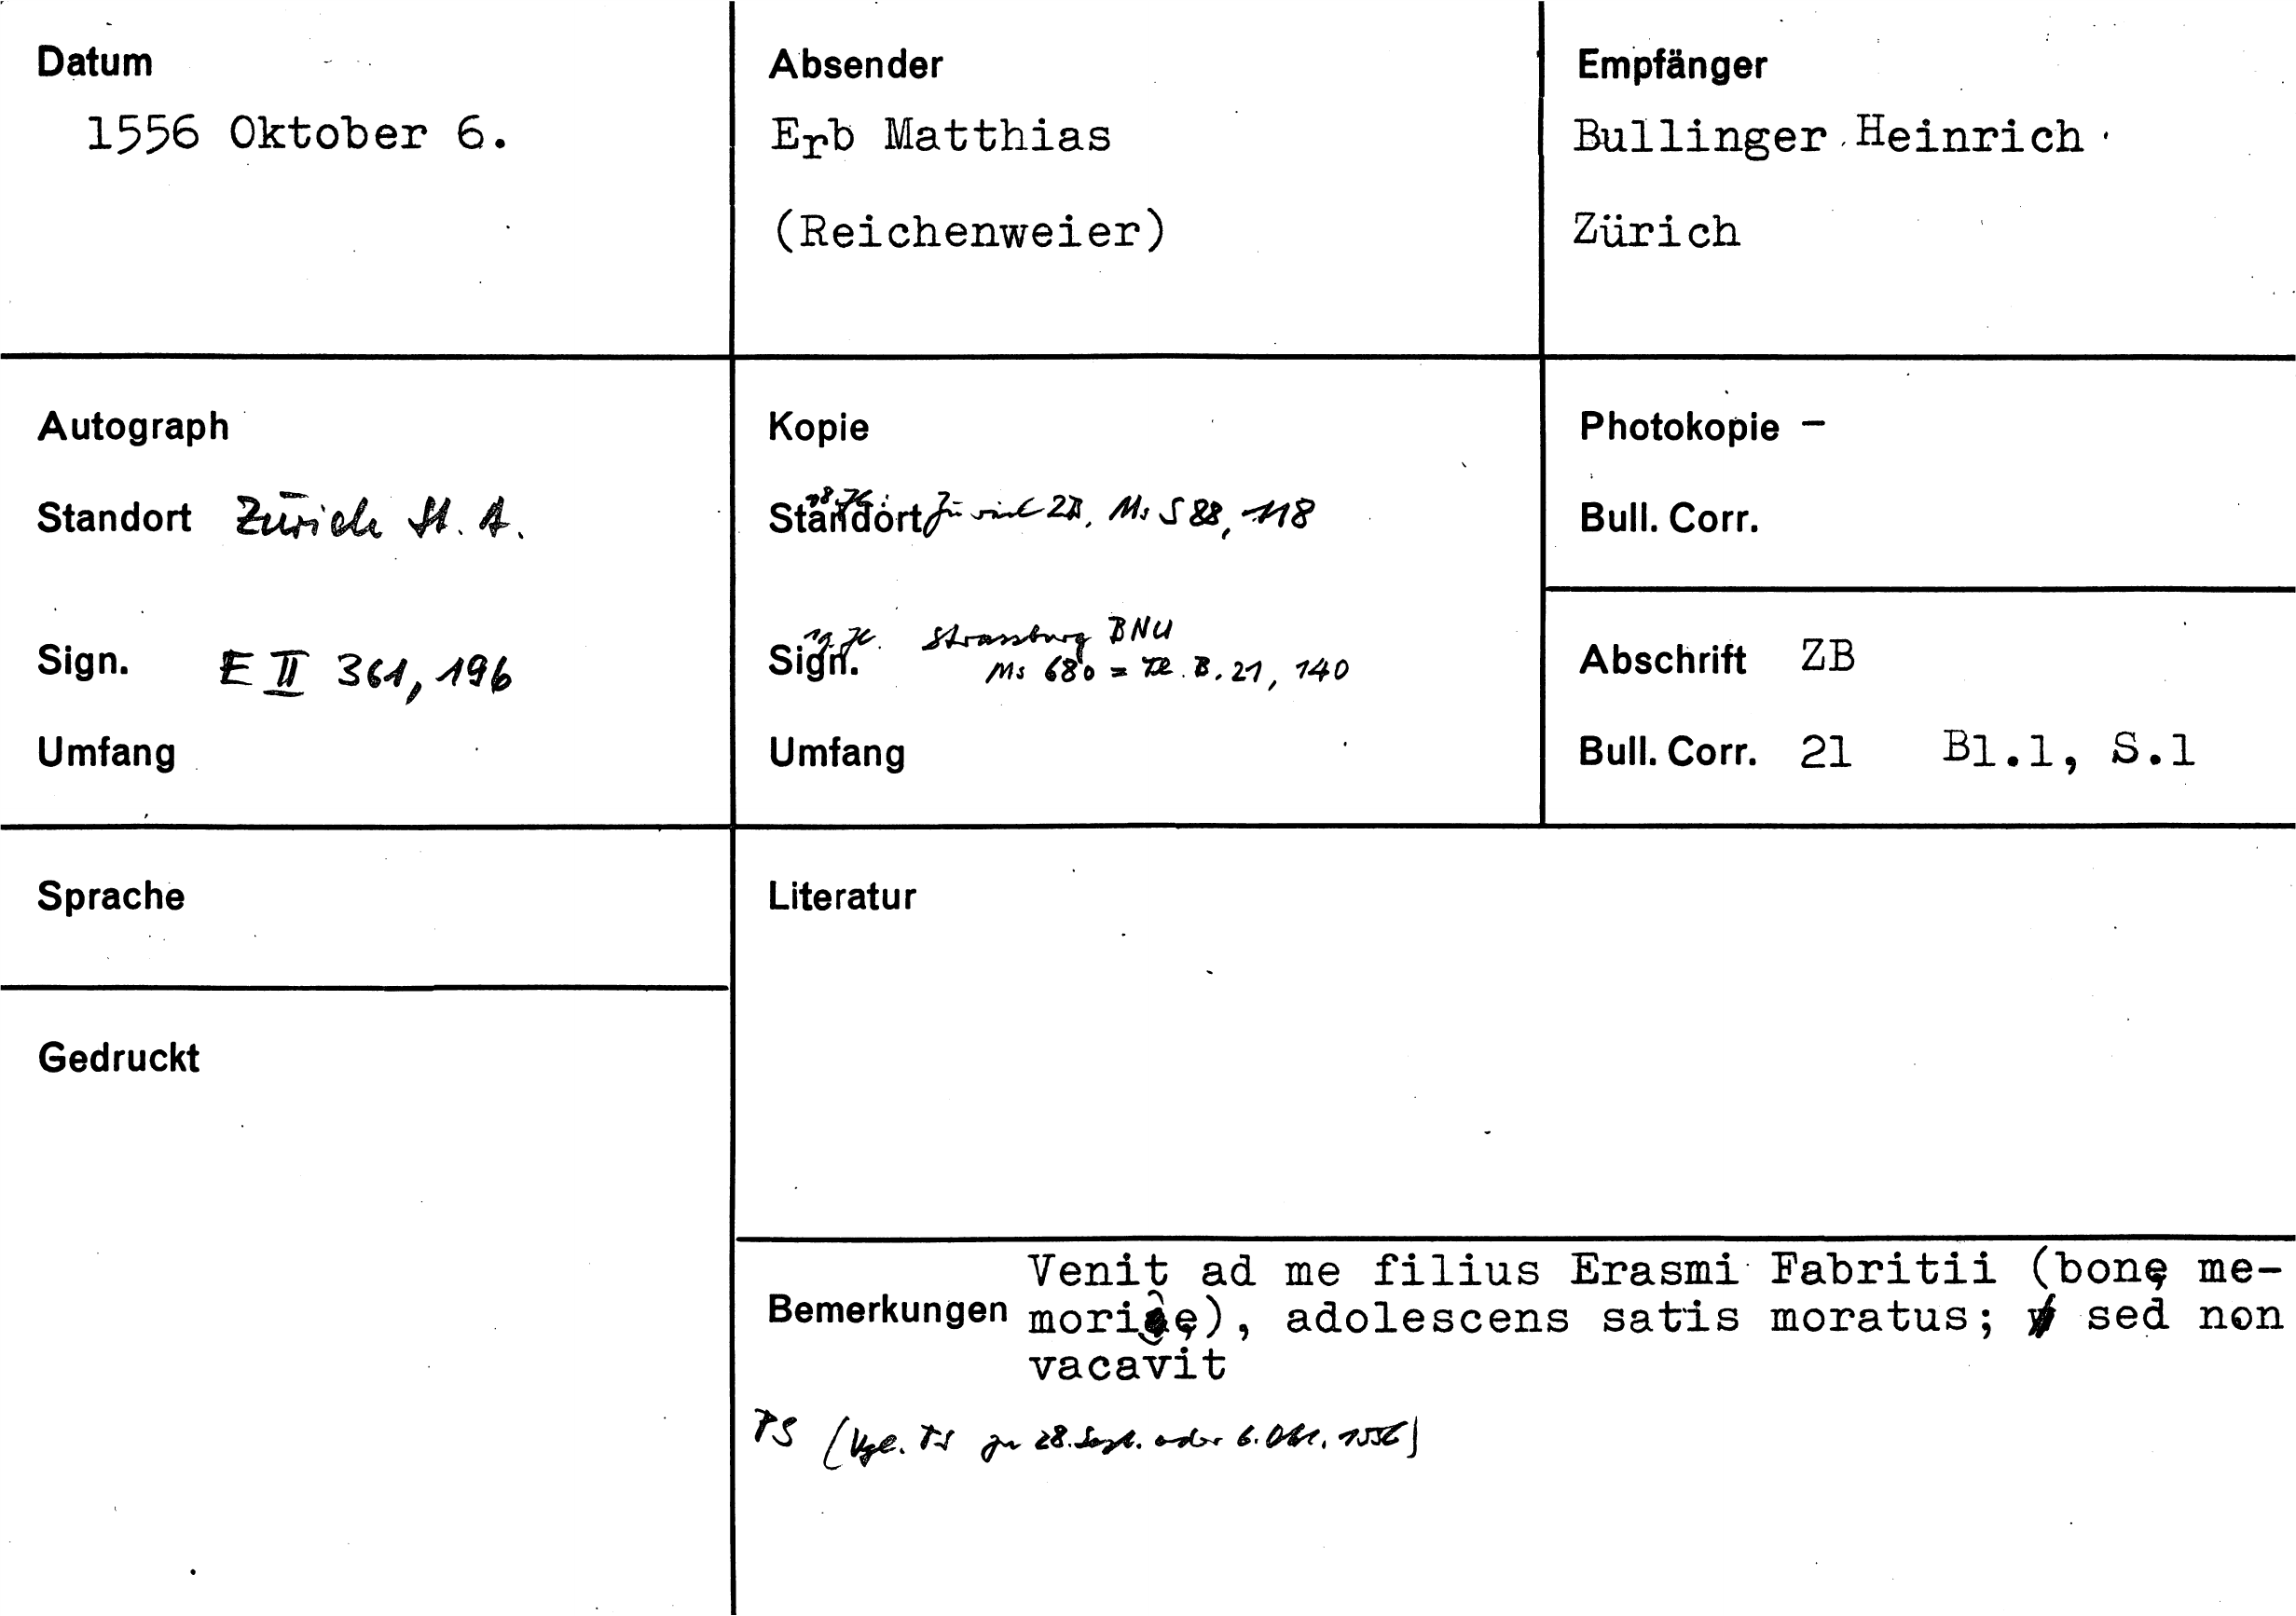 Datum
1556 Oktober 6.
Absender
Erb Matthias
(Reichenweier)
Empfänger
Bullinger Heinrich
Zürich
Autograph
Standort Zürich St. A.
Sign. E II 361, 196
Umfang
Kopie
18. Jh.
Standort Zürich ZB, Ms S 88, 118
19. Jh. Strassburg BNU
Sign. Ms 680 = B. 21, 140
Umfang
Photokopie –
Bull. Corr.
Abschrift ZB
Bull. Corr. 21 Bl.1, S.1
Sprache
Gedruckt
Literatur
Bemerkungen
Venit ad me filius Erasmi Fabritii (bonę me-
morię), adolescens satis moratus; sed non
vacavit
PS (Vgl. PS zu 28. Sept. oder 6. Okt. 1556)